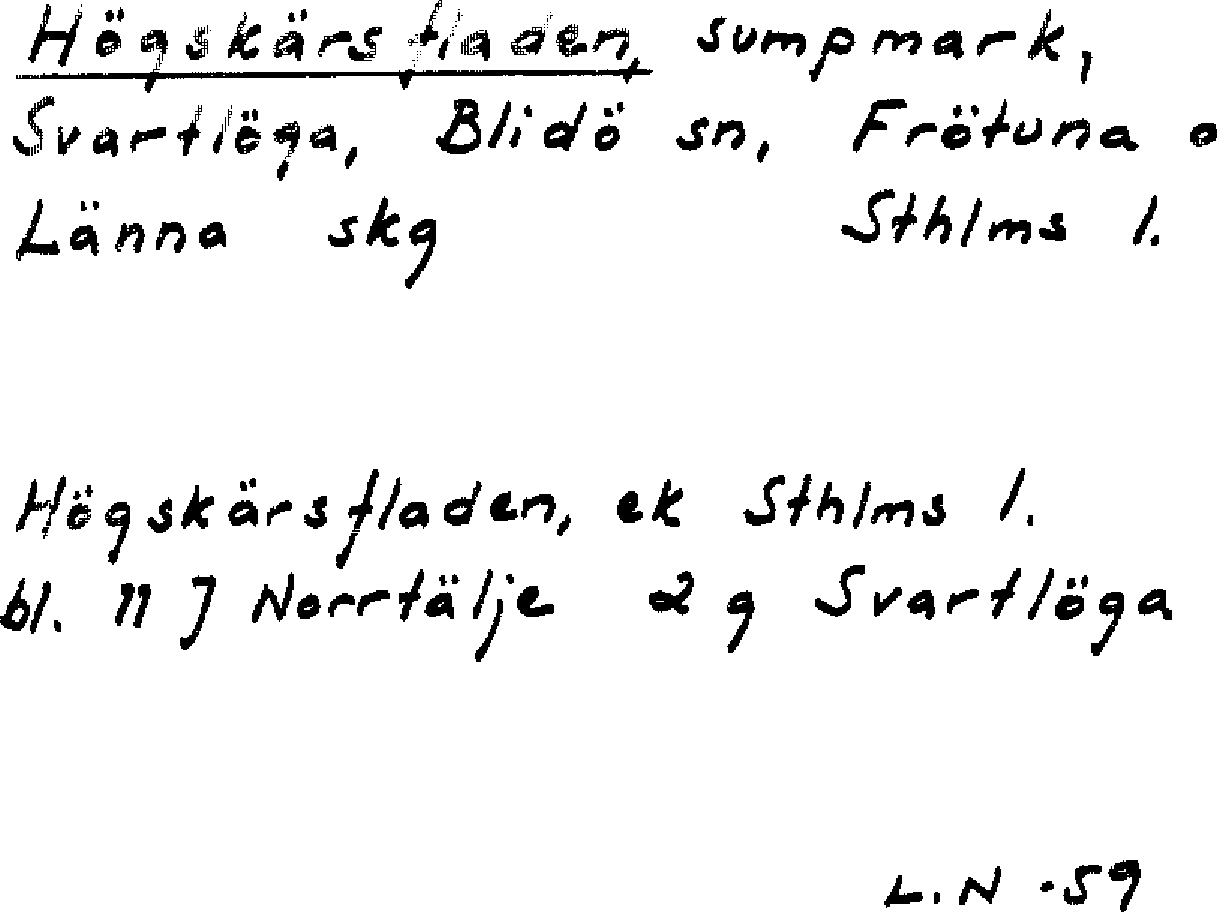 Högskärsfladen, sumpmark,
Svartlöga, Blidö sn, Frötuna o
Länna skg Sthlms l.
Högskärsfladen, ek Sthlms l.
bl. 11 J Norrtälje 2 g Svartlöga
L.N -59